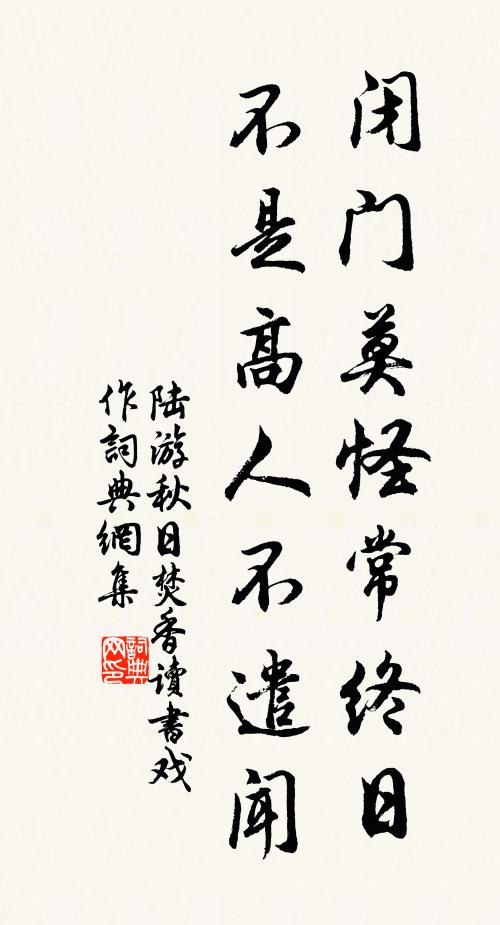 闭门莫怪常终日
不是高人不遣闻
陆游秋日焚香读书戏
作詞典網集
詞典
网印